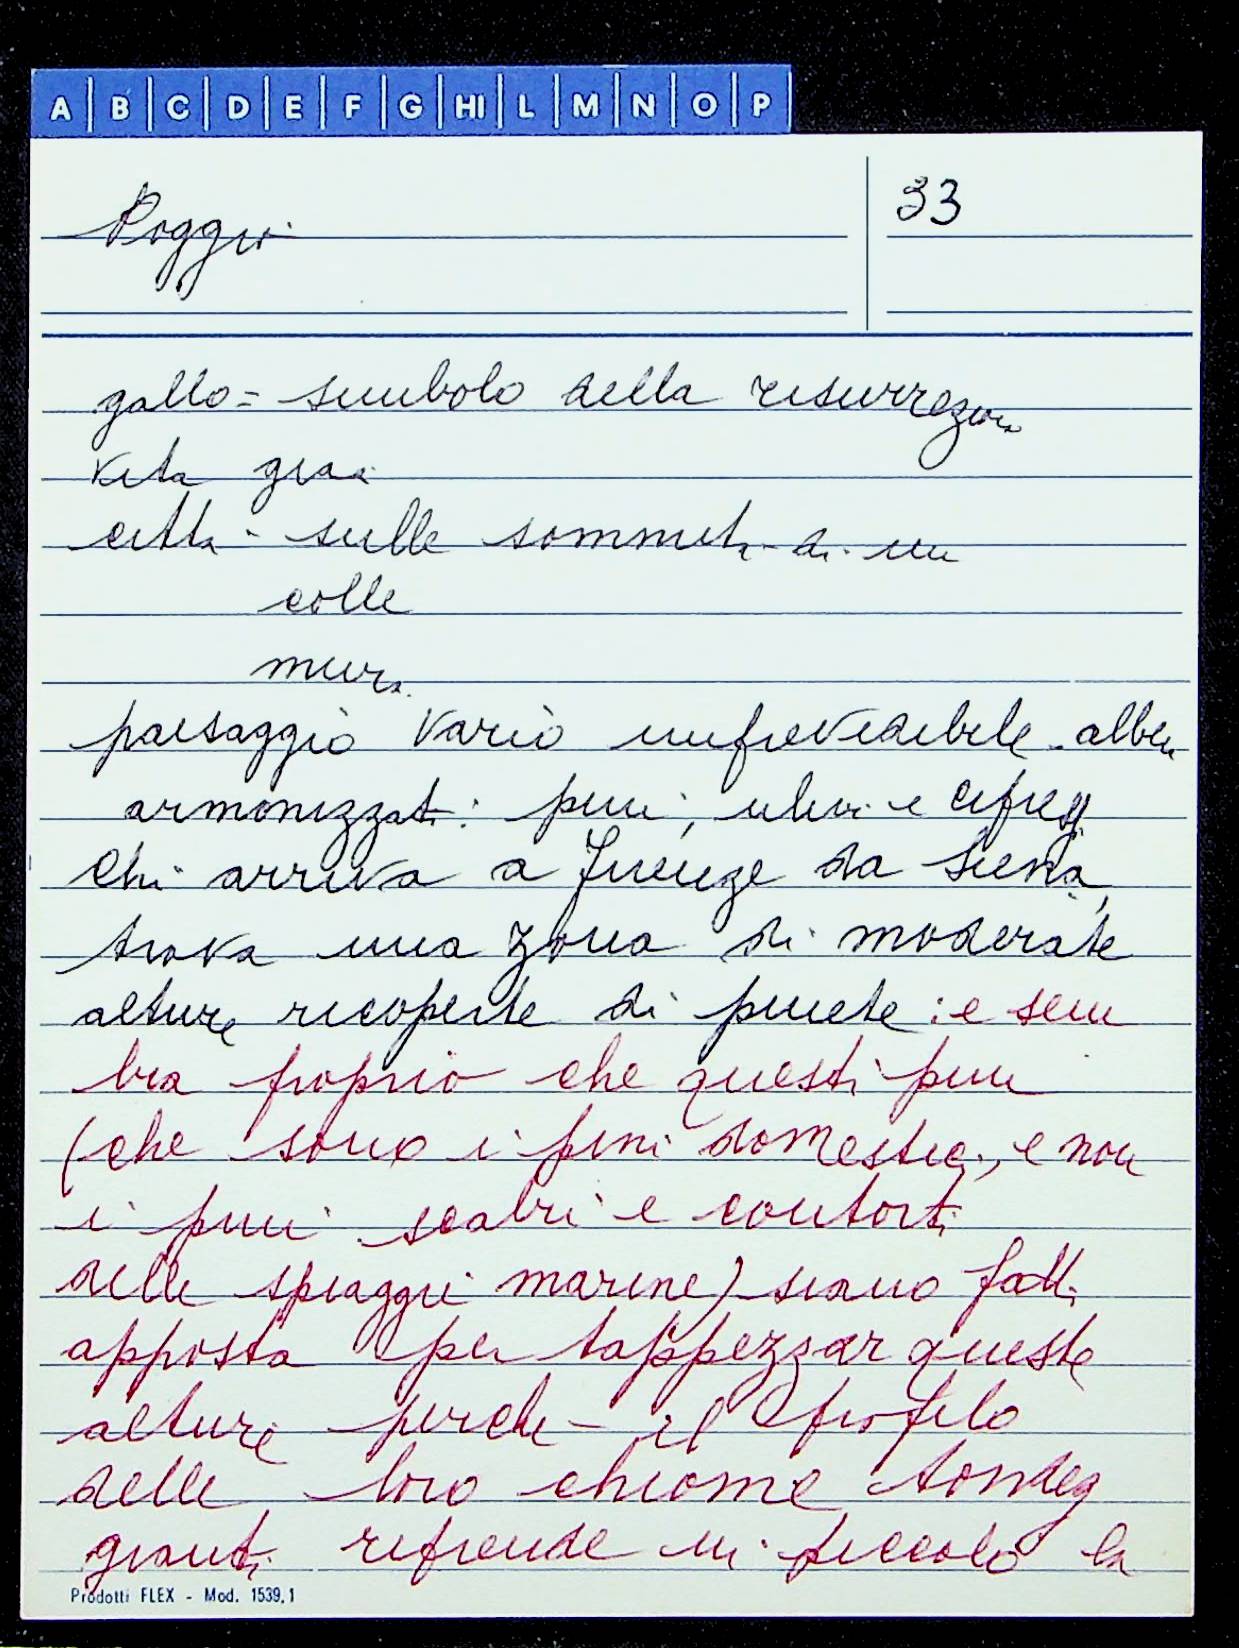 A B C D E F G HI L M N O P
Poggio
33
gallo = simbolo della resurrezione
vita
città - sulle sommità di un
colle
mura
paesaggio vario imprevedibile - alberi
armonizzati: pini, ulivi e cipressi
Chi arriva a Firenze da Siena,
trova una zona di moderate
alture ricoperte di pinete: e sem
bra proprio che questi pini
(che sono i pini domestici, e non
i pini scabri e contorti
delle spiagge marine) siano fatti
apposta per tappezzar queste
alture perché il profilo
delle loro chiome tondeg
gianti riprende in piccolo la
Prodotti FLEX - Mod. 1539,1